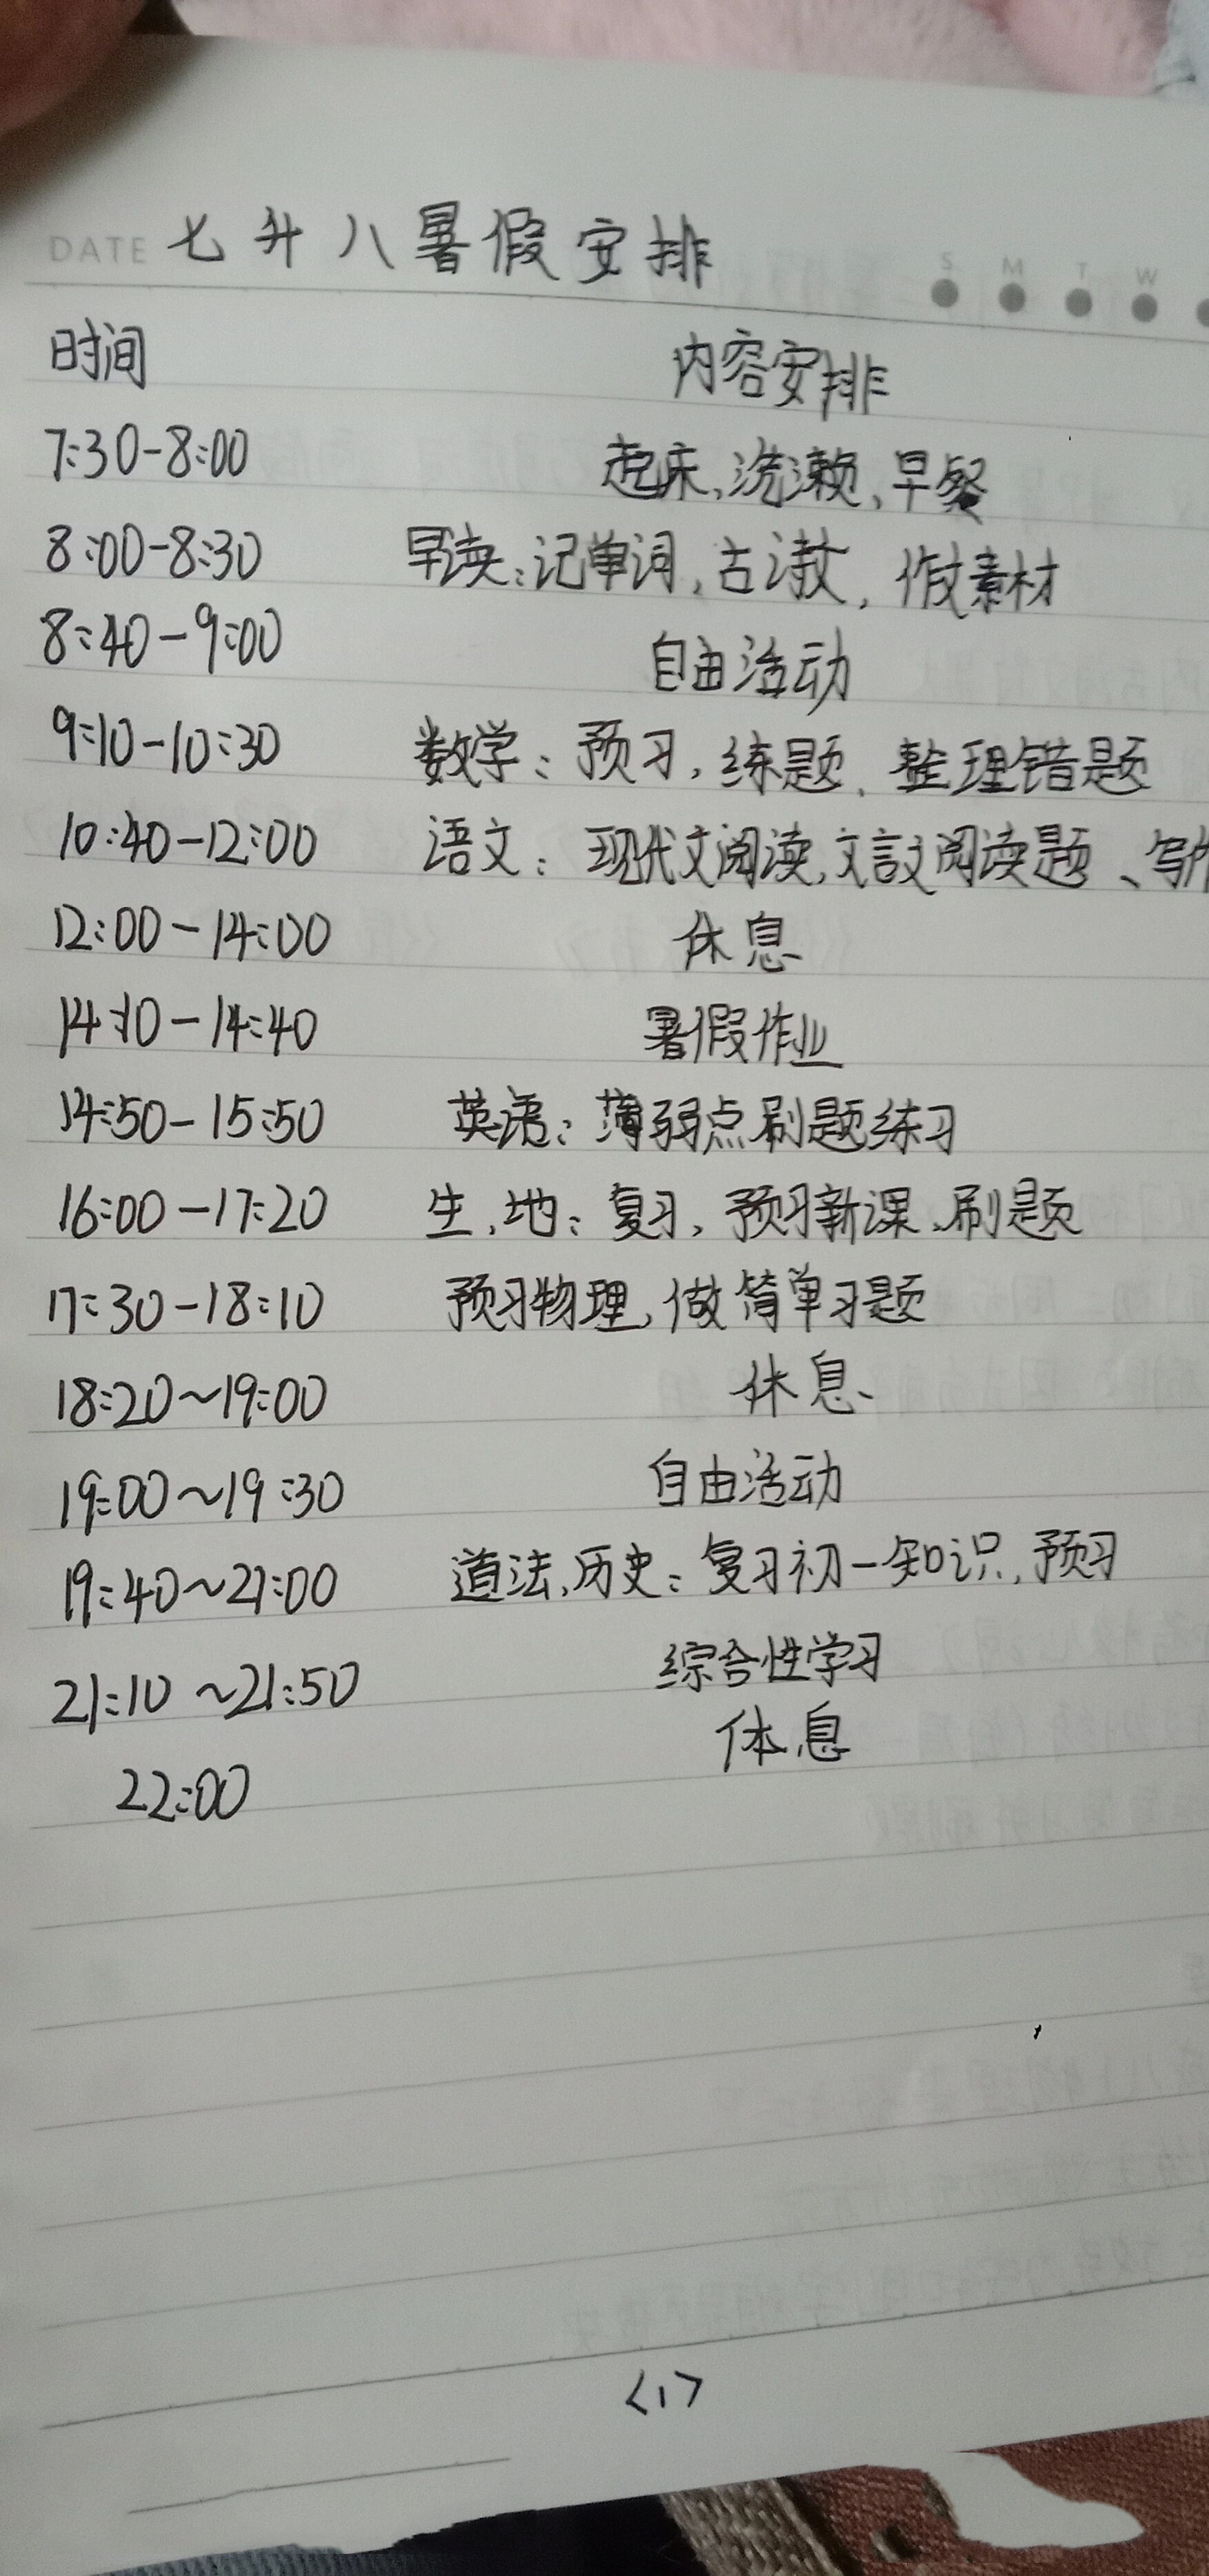 DATE 七升八暑假安排
S M T W
时间 内容安排
7:30-8:00 起床、洗漱、早餐
8:00-8:30 早读:记单词,古诗文,作文素材
8:40-9:00 自由活动
9:10-10:30 数学:预习,练题、整理错题
10:40-12:00 语文:现代文阅读,文言文阅读题、写
12:00-14:00 休息
14:10-14:40 暑假作业
14:50-15:50 英语:薄弱点刷题练习
16:00-17:20 生、地:复习,预习新课、刷题
17:30-18:10 预习物理,做简单习题
18:20~19:00 休息
19:00~19:30 自由活动
19:40~21:00 道法、历史:复习初一知识,预习
21:10~21:50 综合性学习
22:00 休息
<1>